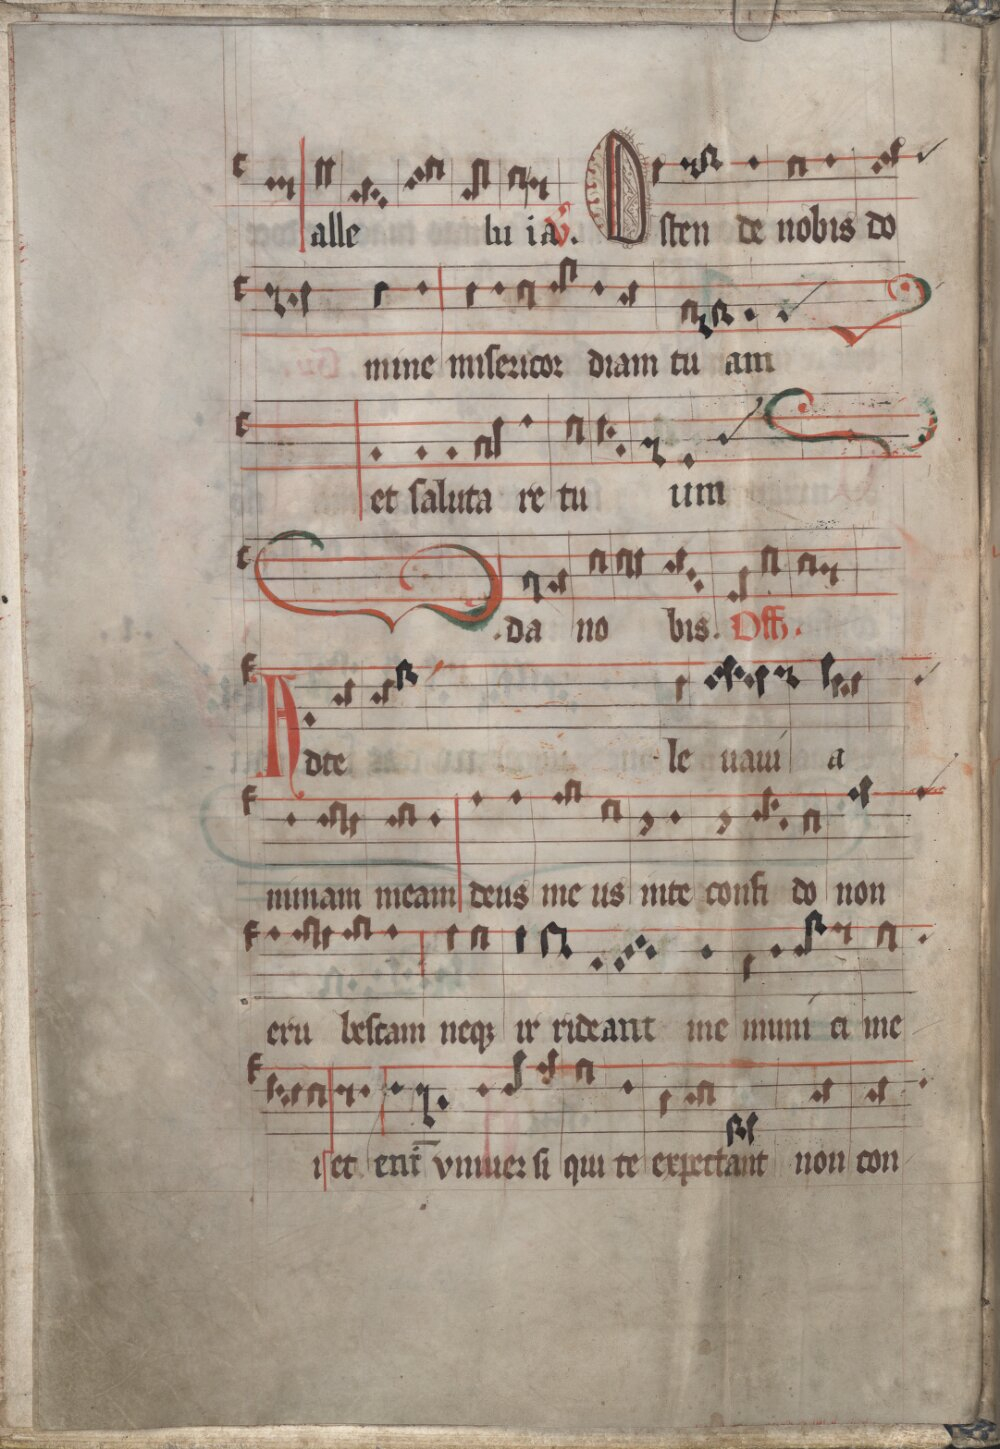 alle lu ia. V̓ Osten de nobis do
mine misericor diam tu am
et saluta re tu um
.da no bis. Off̄.
Adte le uaui a
nimam meam deus me us inte confi do non
eru bescam neqꝫ ir rideant me inimi ci me
i et eni̅ vniuer si qui te expectant non con